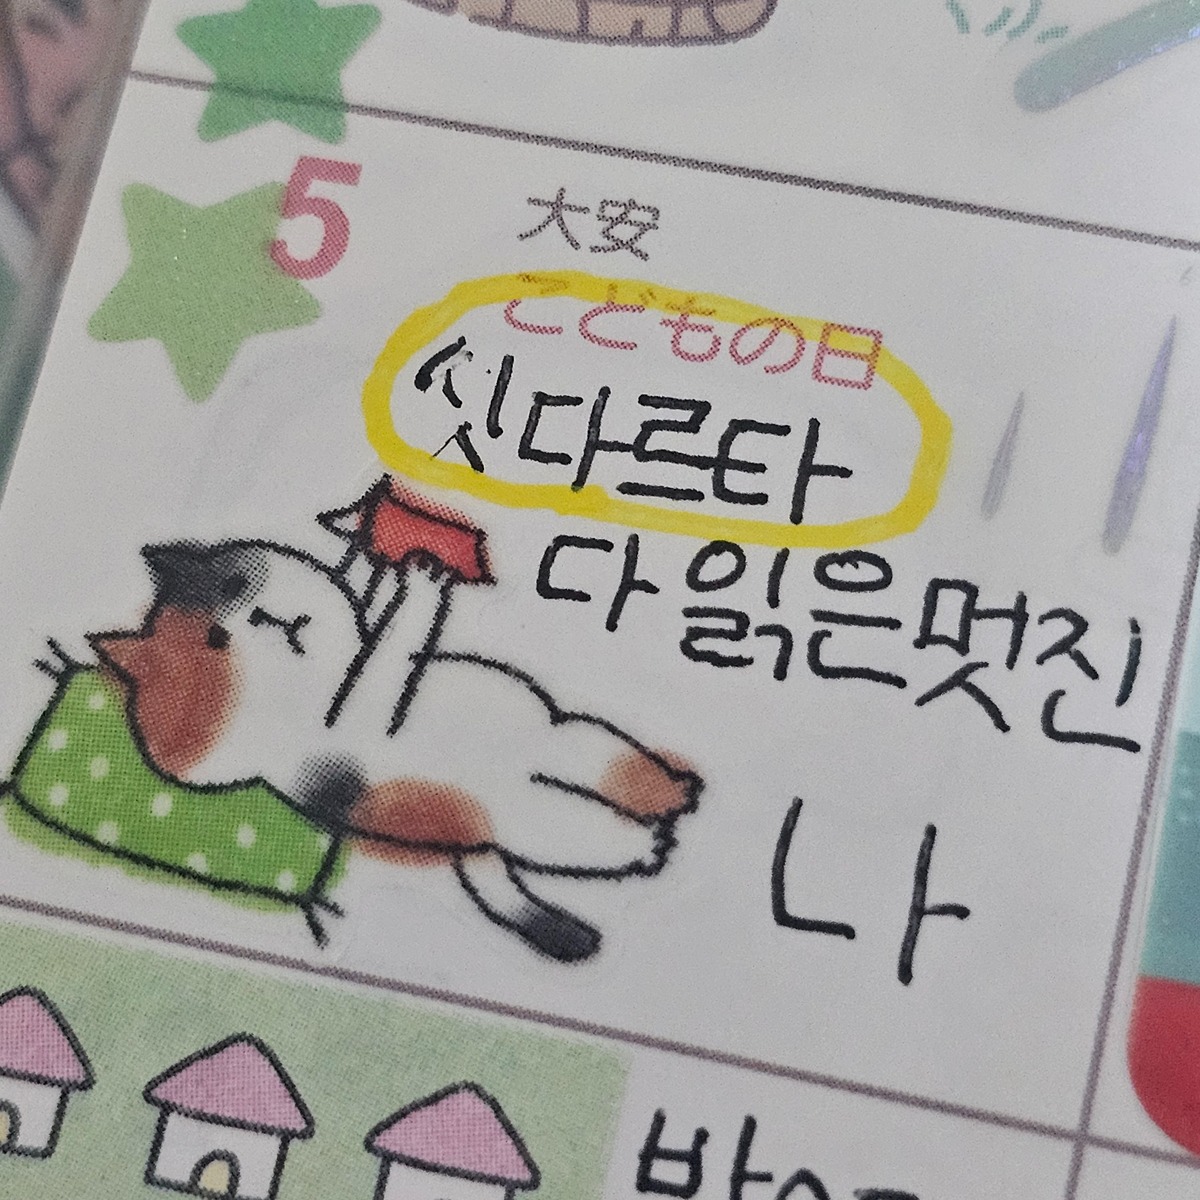 5
大安
こどもの日
싯다르타
다 읽은 멋진
나